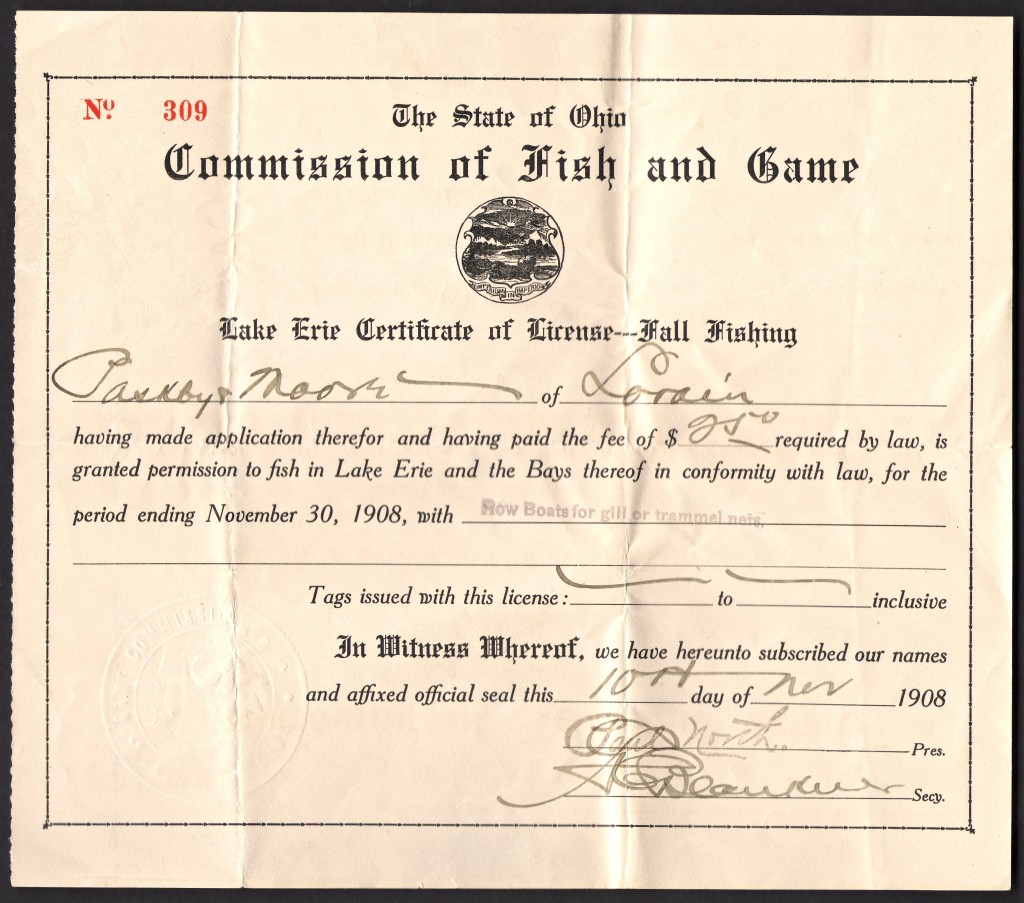 Nº 309
The State of Ohio
Commission of Fish and Game
IMPERIUM IN IMPERIO
Lake Erie Certificate of License---Fall Fishing
& Moore of Lorain
having made application therefor and having paid the fee of $ 250 required by law, is
granted permission to fish in Lake Erie and the Bays thereof in conformity with law, for the
period ending November 30, 1908, with Row Boats for gill or trammel nets.
Tags issued with this license: to inclusive
In Witness Whereof, we have hereunto subscribed our names
and affixed official seal this 10th day of Nov 1908
Paul North. Pres.
Secy.